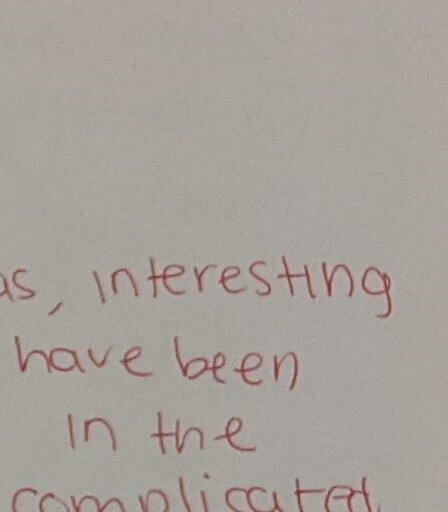 as, interesting
have been
in the
complicated